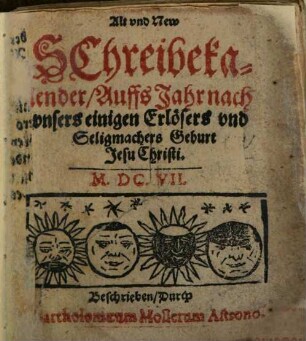 Alt vnd New
SChreibeka-
lender/Auffs Jahr nach
vnsers einigen Erlösers vnd
Seligmachers Geburt
Jesu Christi.
M. DC. VII.
Beschrieben/Durch
Bartholomæum Mollerum Astrono-